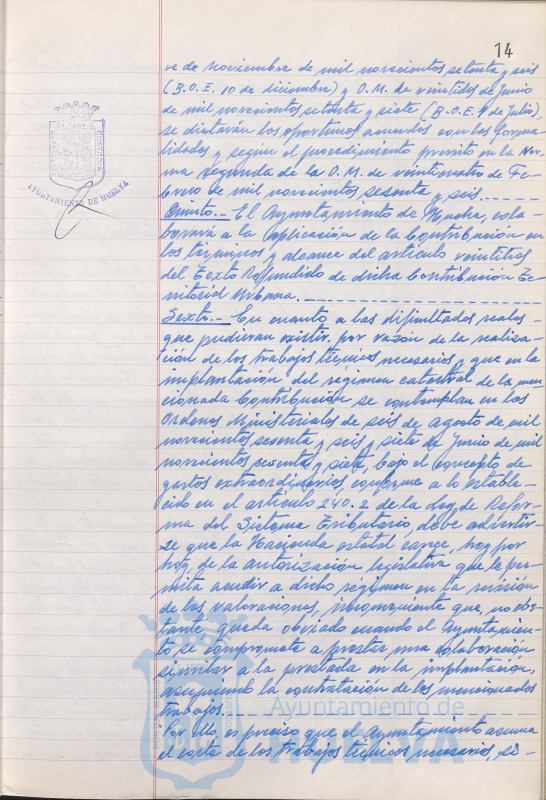 14
ve de Noviembre de mil novecientos setenta y seis
(B.O.E. 10 de diciembre) y O.M. de veintidos de Junio
de mil novecientos setenta y siete (B.O.E. 9 de Julio),
se dictarán los oportunos acuerdos con las forma-
lidades y según el procedimiento previsto en la Nor-
ma segunda de la O.M. de veinticuatro de Fe-
brero de mil novecientos sesenta y seis.
Quinto.- El Ayuntamiento de Huelva, cola-
borará a la aplicación de la Contribución en
los términos y alcance del artículo veintitres
del Texto Refundido de dicha Contribución Te-
rritorial Urbana.
Sexto.- En cuanto a las dificultades reales
que pudieran existir, por razón de la realiza-
ción de los trabajos técnicos necesarios y que en la
implantación del régimen catastral de la men-
cionada Contribución se contemplan en las
Ordenes Ministeriales de seis de agosto de mil
novecientos sesenta y seis y siete de Junio de mil
novecientos sesenta y siete, bajo el concepto de
gastos extraordinarios, conforme a lo estable-
cido en el artículo 240.2 de la Ley de Refor-
ma del Sistema Tributario, debe advertir-
se que la Hacienda estatal carece, hoy por
hoy, de la autorización legislativa que le per-
mita acudir a dicho régimen en la revisión
de las valoraciones, inconveniente que, no obs-
tante, queda obviado cuando el Ayuntamien-
to se compromete a prestar una colaboración
similar a la prestada en la implantación,
asumiendo la contratación de los mencionados
trabajos.
Por ello, es preciso que el Ayuntamiento asuma
el coste de los trabajos técnicos necesarios, si-
JUSTICIA
AYUNTAMIENTO DE HUELVA
Ayuntamiento de
HUELVA